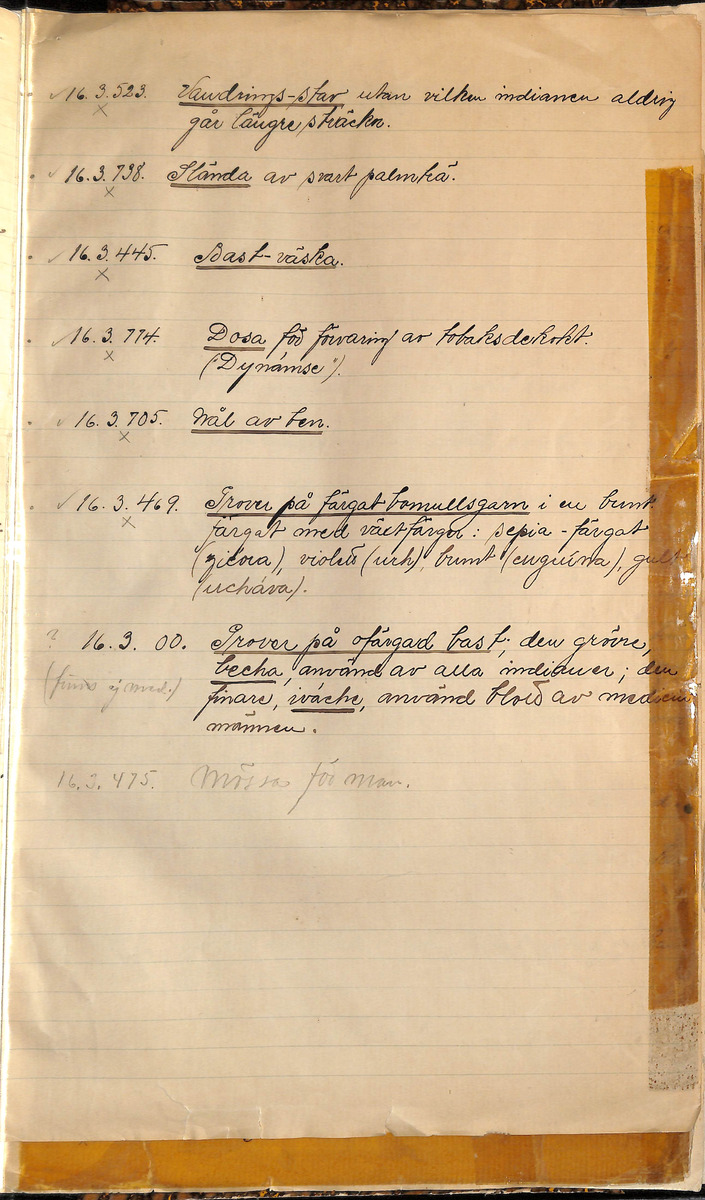 ✓ 16.3.523. Vandrings-stav utan vilken indianen aldrig
×
går längre sträckor.
✓ 16.3.738. Slända av svart palmträ.
×
✓ 16.3.445. Bast-väska.
×
✓ 16.3.774. Dosa för förvaring av tobaksdekokt.
×
("Dynámse").
✓ 16.3.705. Nål av ben.
×
✓ 16.3.469. Prover på färgat bomullsgarn i en bunt
×
färgat med växtfärger: sepia-färgat
violett brunt gult
(ucháva).
? 16.3. 00. Prover på ofärgad bast; den grövre,
(finns ej med.) becha, använd av alla indianer; den
finare, iváche, använd blott av medicin
männen.
16.3.475. Mössa för man.